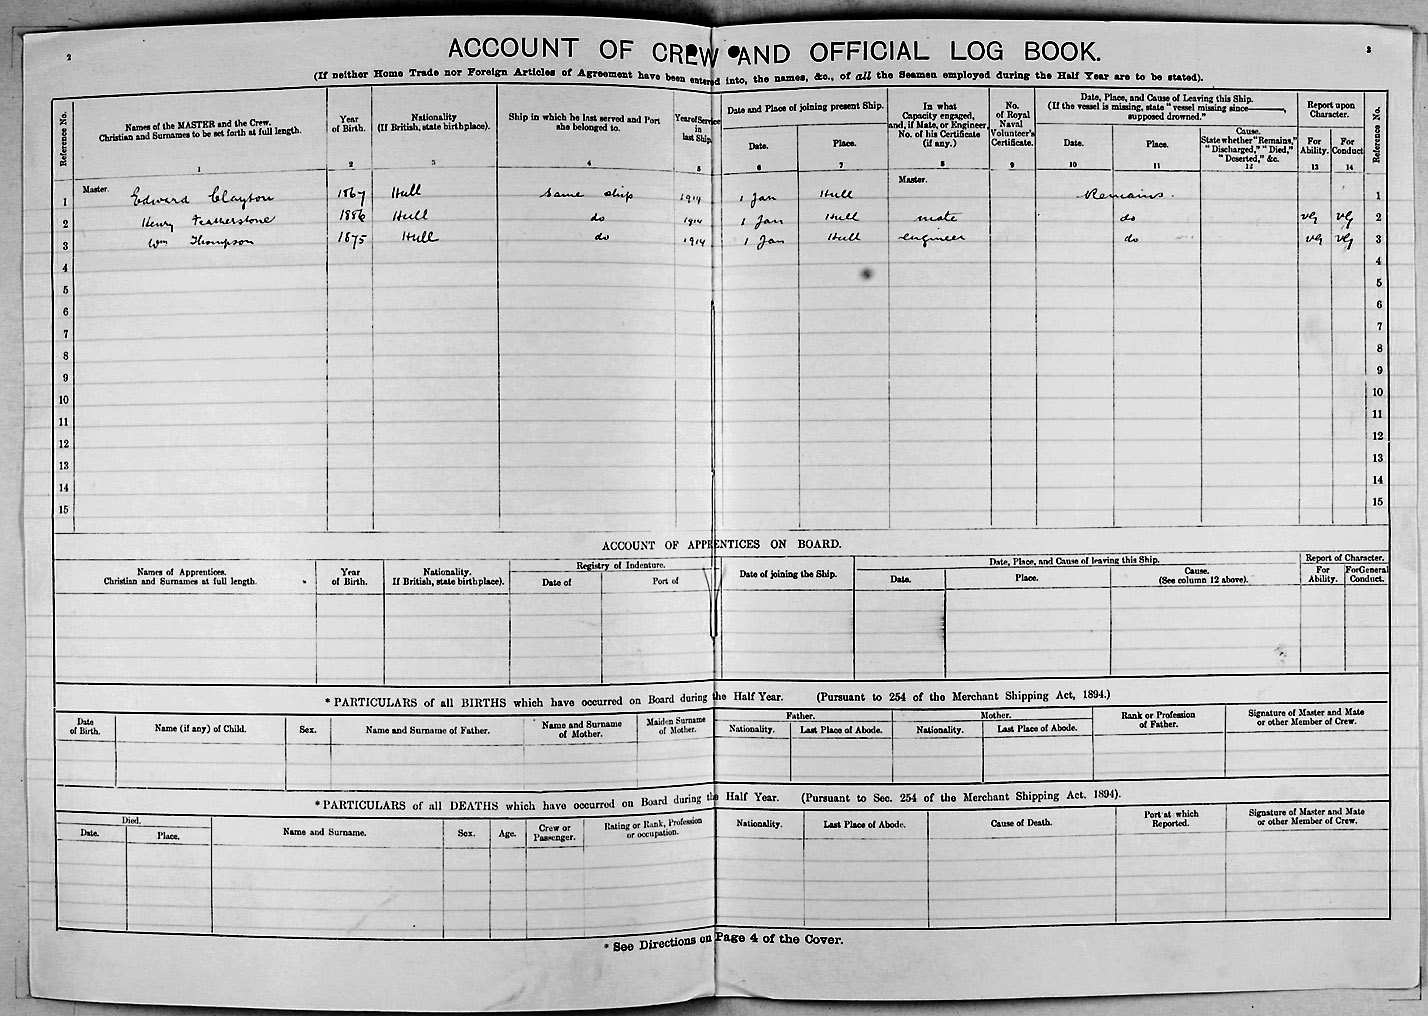 2
3
ACCOUNT OF CREW AND OFFICIAL LOG BOOK.
(If neither Home Trade nor Foreign Articles of Agreement have been entered into, the names, &c., of all the Seamen employed during the Half Year are to be stated).
Reference No.
Names of the MASTER and the Crew.
Christian and Surnames to be set forth at full length.
1
Year
of Birth.
2
Nationality
(If British, state birthplace).
3
Ship in which he last served and Port
she belonged to.
4
Year of Service
in
last Ship.
5
Date and Place of joining present Ship.
Date.
6
Place.
7
In what
Capacity engaged,
and, if Mate, or Engineer,
No. of his Certificate
(if any.)
8
No.
of Royal
Naval
Volunteer's
Certificate.
9
Date, Place, and Cause of Leaving this Ship.
(If the vessel is missing, state "vessel missing since———,
supposed drowned."
Date.
10
Place.
11
Cause.
State whether "Remains,"
"Discharged," "Died,"
"Deserted," &c.
12
Report upon
Character.
For
Ability.
13
For
Conduct
14
Reference No.
1 Master. Edward Clayton 1867 Hull Same ship 1914 1 Jan Hull Master. Remains. 1
2 Henry Featherstone 1886 Hull do 1914 1 Jan Hull mate do VG VG 2
3 Wm Thompson 1875 Hull do 1914 1 Jan Hull engineer do VG VG 3
4 4
5 5
6 6
7 7
8 8
9 9
10 10
11 11
12 12
13 13
14 14
15 15
ACCOUNT OF APPRENTICES ON BOARD.
Names of Apprentices.
Christian and Surnames at full length.
Year
of Birth.
Nationality.
If British, state birthplace).
Registry of Indenture.
Date of
Port of
Date of joining the Ship.
Date, Place, and Cause of leaving this Ship.
Date.
Place.
Cause.
(See column 12 above).
Report of Character.
For
Ability.
For General
Conduct.
* PARTICULARS of all BIRTHS which have occurred on Board during the Half Year. (Pursuant to 254 of the Merchant Shipping Act, 1894.)
Date
of Birth.
Name (if any) of Child.
Sex.
Name and Surname of Father.
Name and Surname
of Mother.
Maiden Surname
of Mother.
Father.
Nationality.
Last Place of Abode.
Mother.
Nationality.
Last Place of Abode.
Rank or Profession
of Father.
Signature of Master and Mate
or other Member of Crew.
* PARTICULARS of all DEATHS which have occurred on Board during the Half Year. (Pursuant to Sec. 254 of the Merchant Shipping Act. 1894).
Died.
Date.
Place.
Name and Surname.
Sex.
Age.
Crew or
Passenger.
Rating or Rank, Profession
or occupation.
Nationality.
Last Place of Abode.
Cause of Death.
Port at which
Reported.
Signature of Master and Mate
or other Member of Crew.
* See Directions on Page 4 of the Cover.